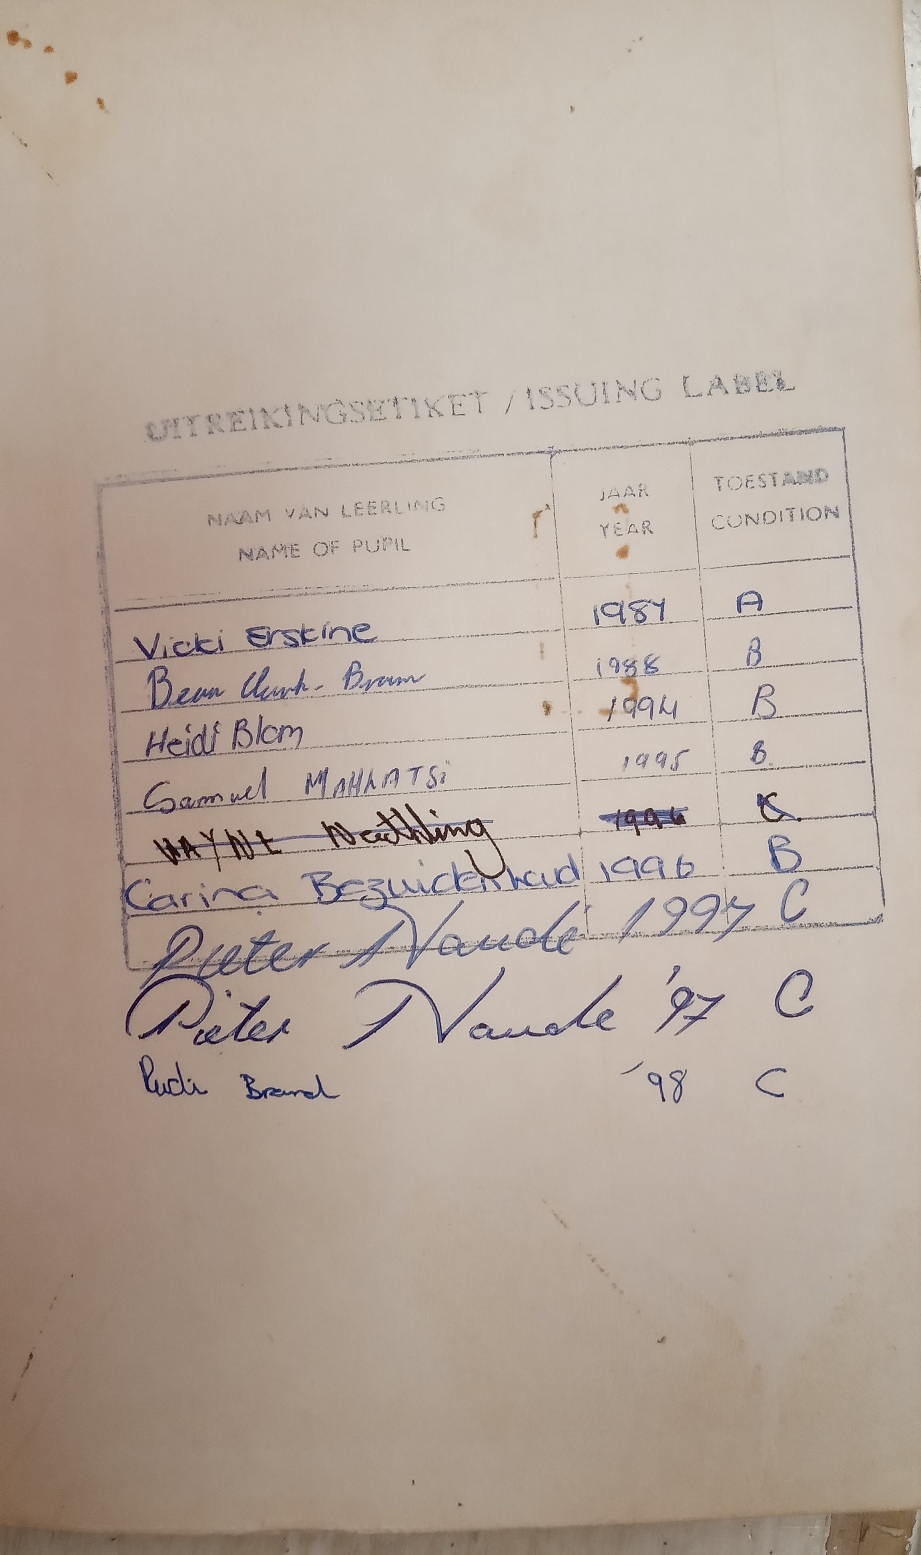 UITREIKINGSETIKET / ISSUING LABEL
NAAM VAN LEERLING JAAR TOESTAND
NAME OF PUPIL YEAR CONDITION
Vicki Erskine 1987 A
1988 B
Heidi Blom 1994 B
Samuel MAHLATSi 1995 B
WAYNE Neethling 1996
Carina Bezuidenhoud 1996 B
Pieter Naudé 1997 C
Pieter Naude '97 C
Rudi Brand '98 C